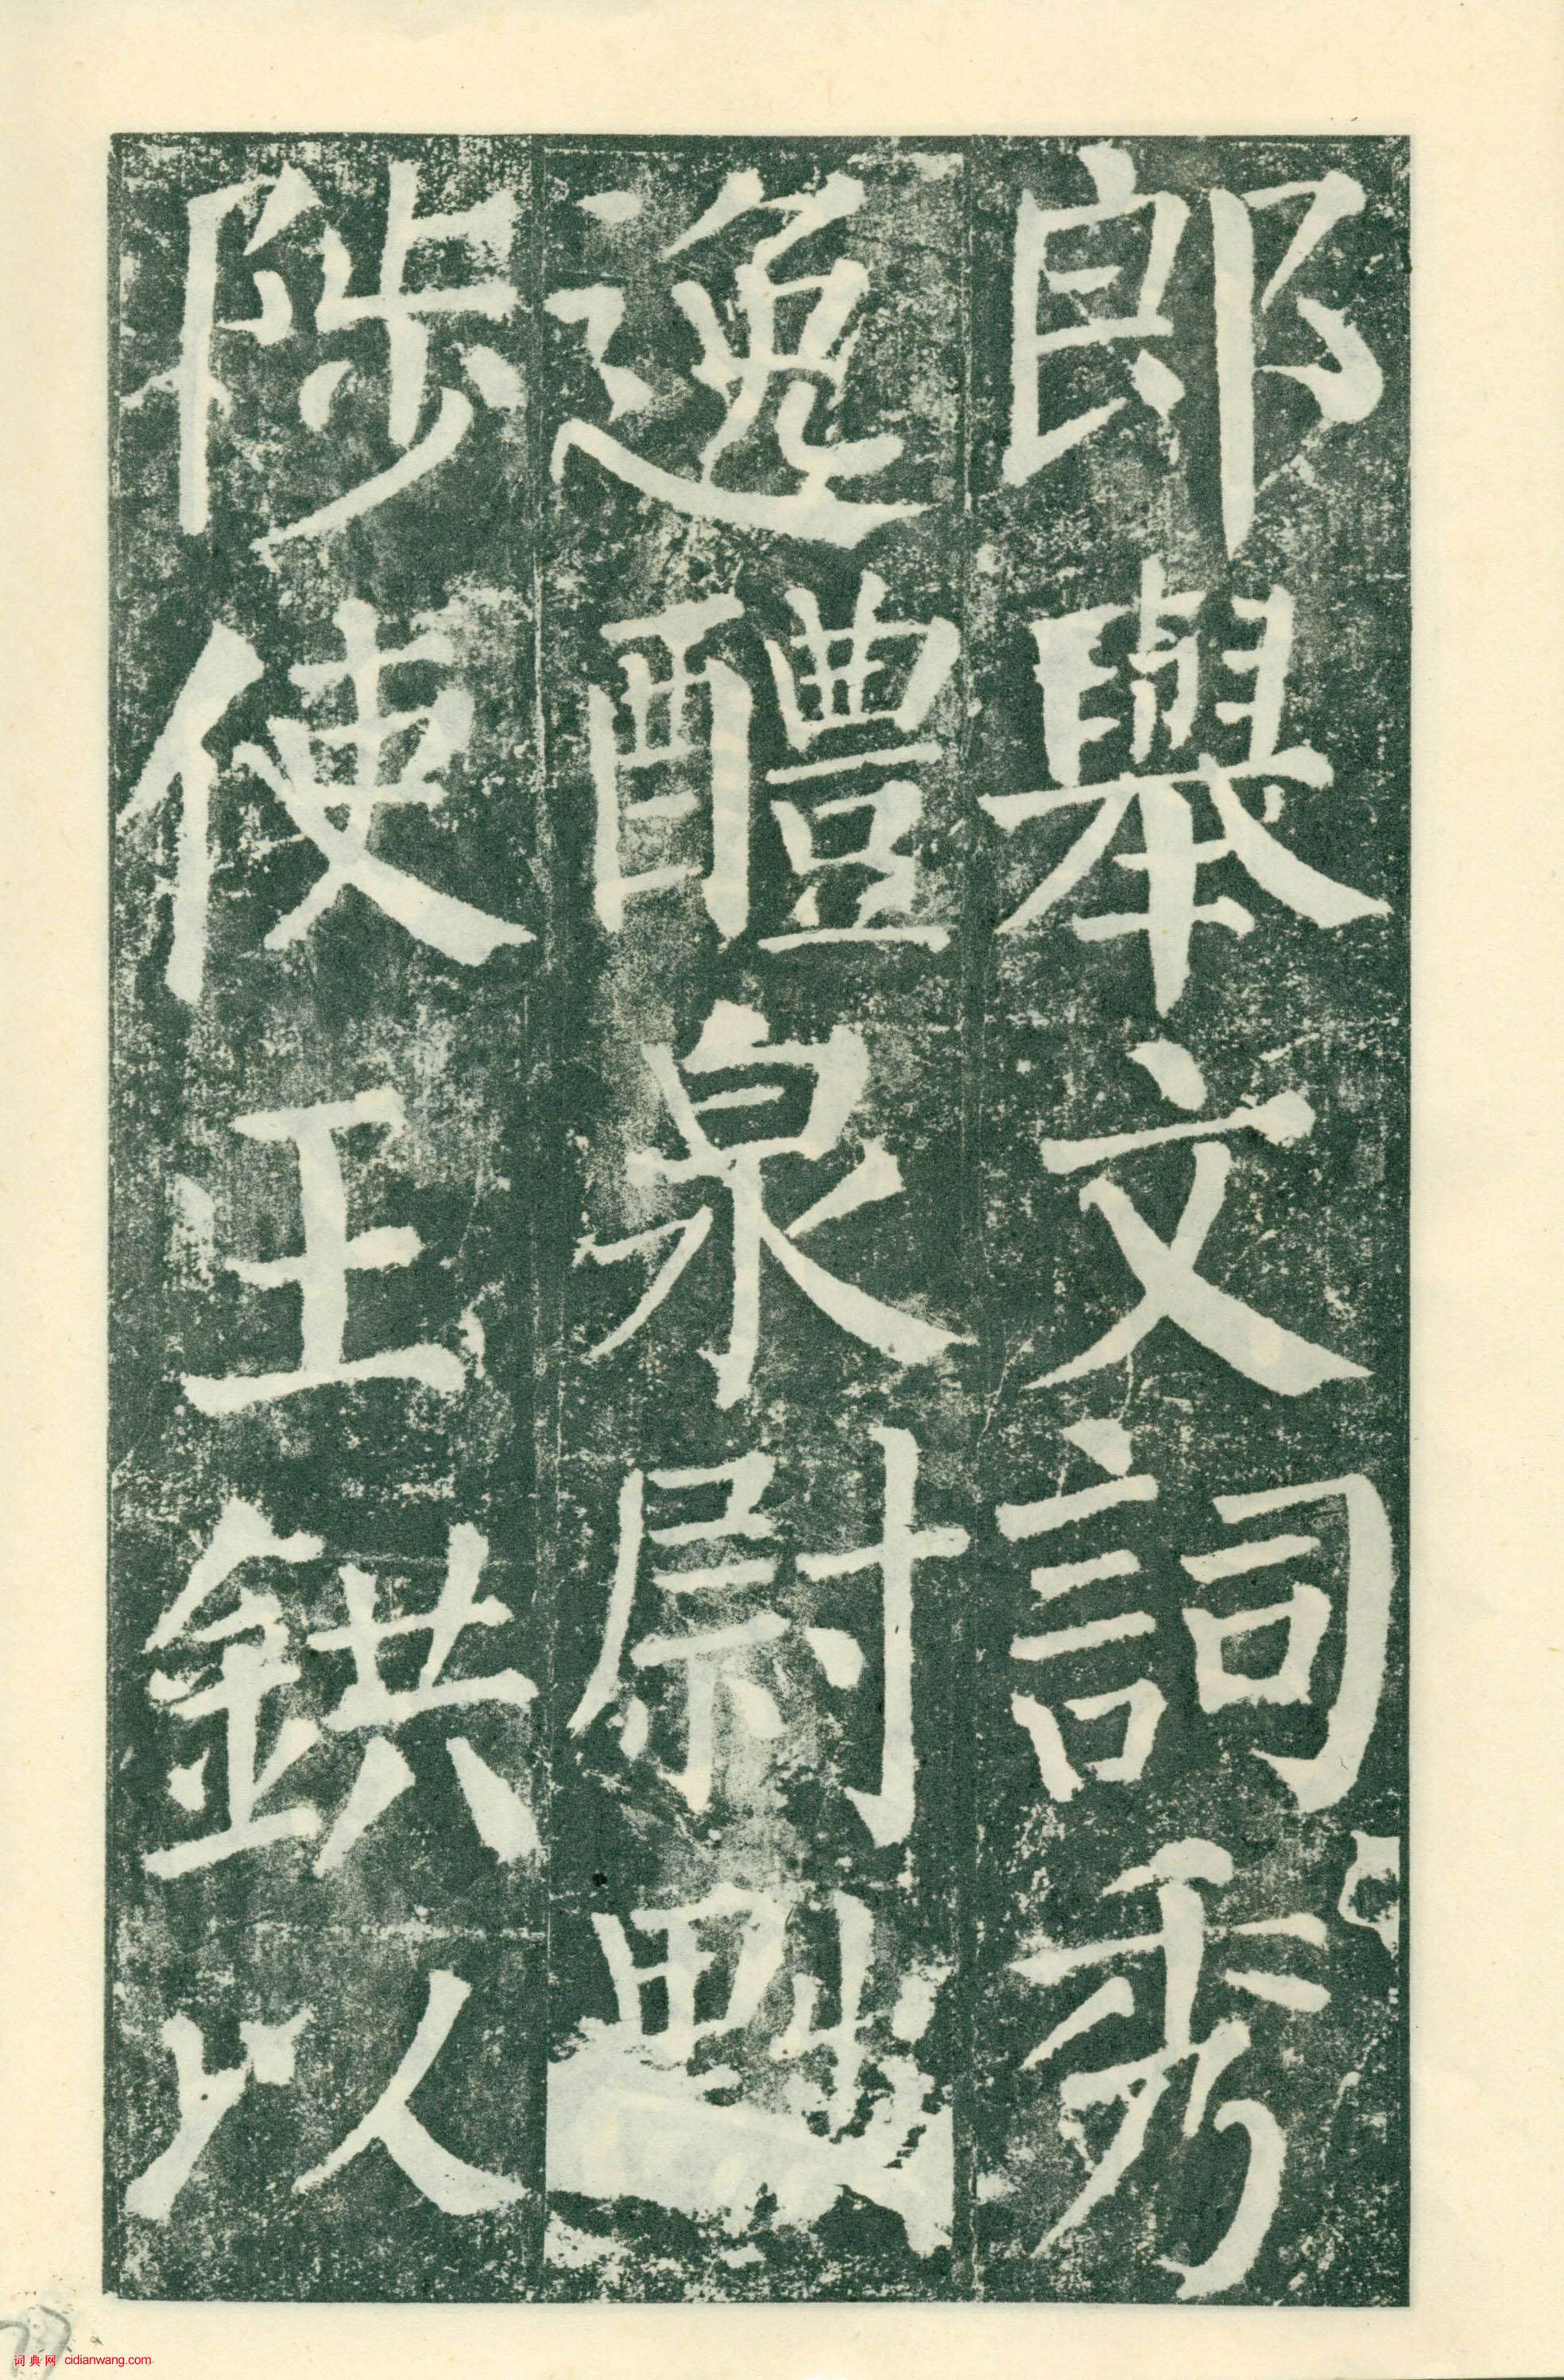 郎舉文詞秀
逸醴泉尉黜
陟使王鉷以
词典网 cidianwang.com